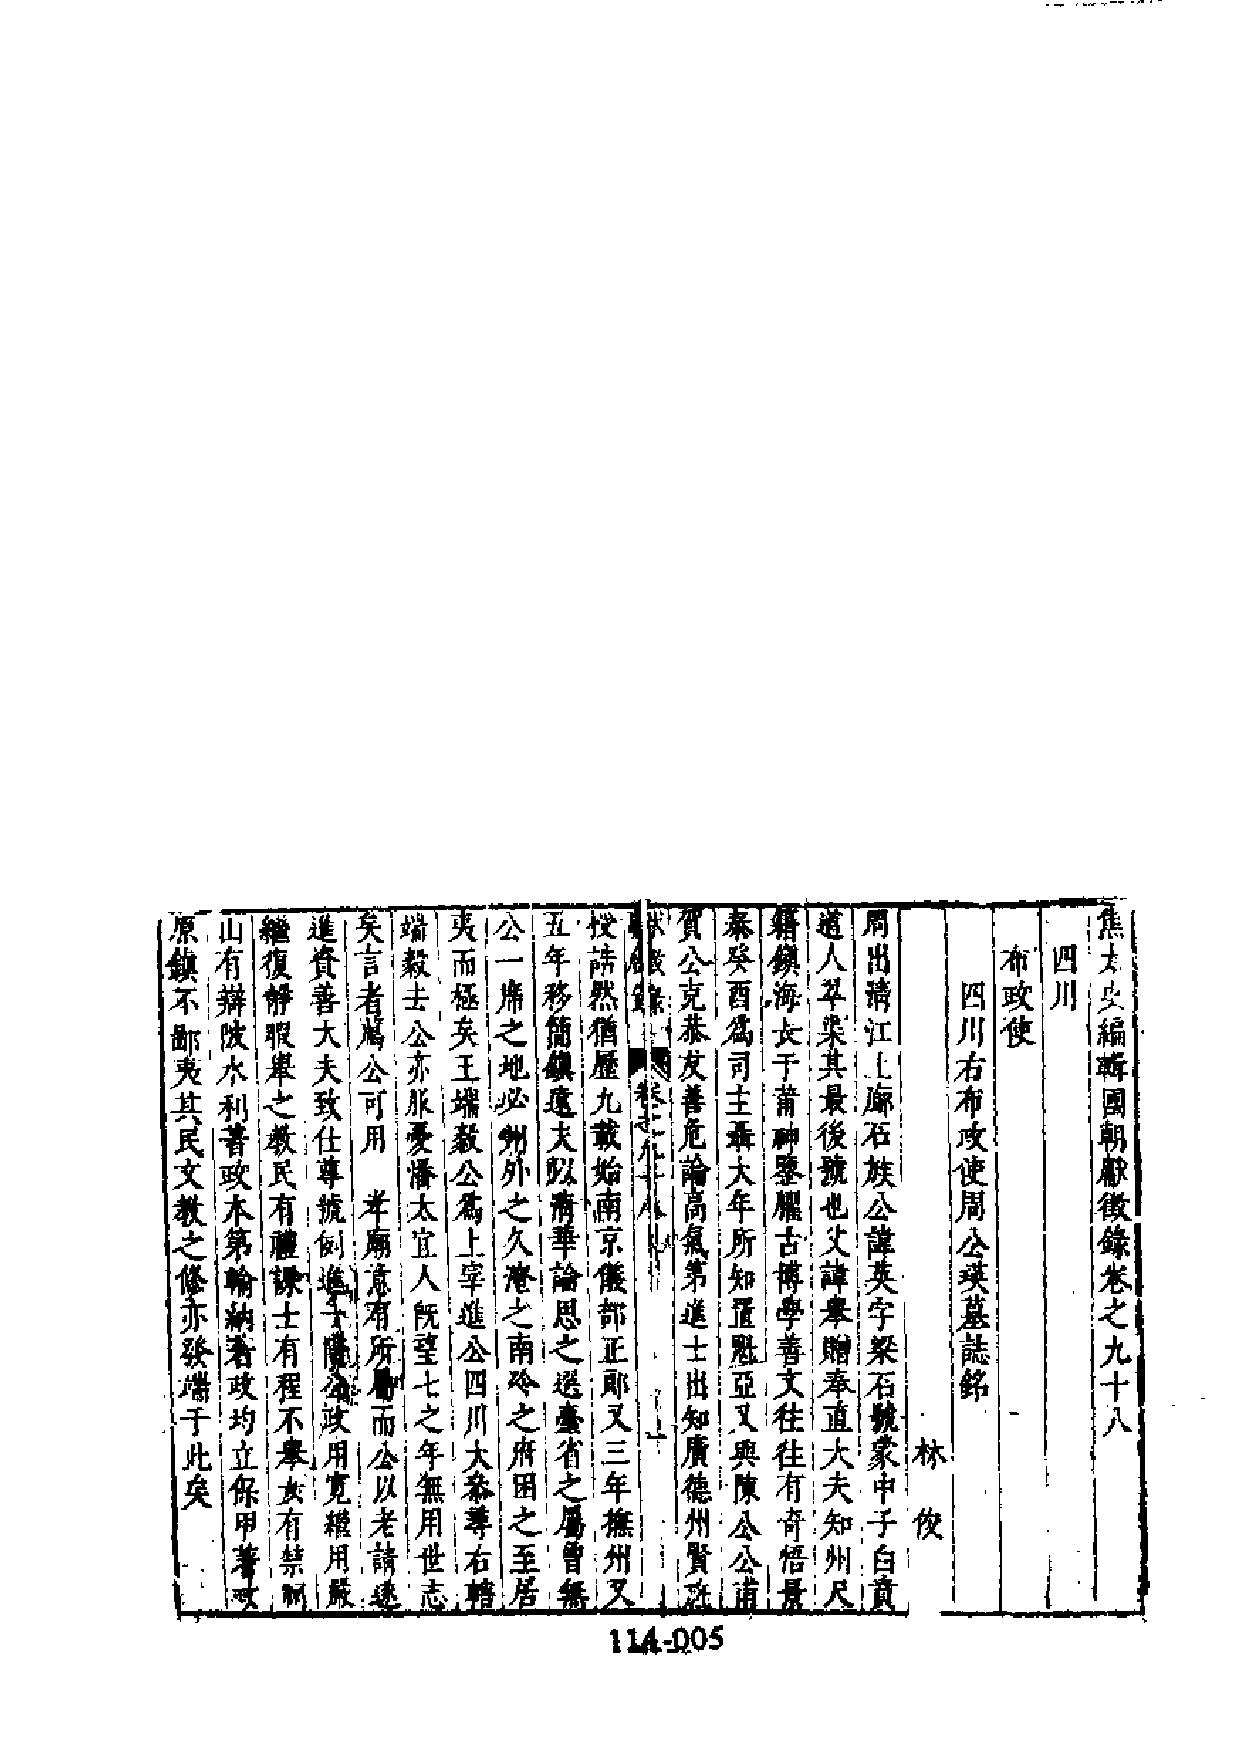 焦太史編輯國朝獻徵錄卷之九十八
四川
布政使
四川右布政使周公瑛墓誌銘
林俊
周出清江上廊石族公諱英字梁石號蒙中子白賁
道人翠渠其最後號也父諱舉贈奉直大夫知州尺
籍鎮海長于莆神鑒朧古博學善文往往有奇悟景
泰癸酉爲司主聶大年所知置魁亞又與陳公公甫
賀公克恭友善危論高氣第進士出知廣德州賢
獻徵錄 卷之九十八 一
授誥然猶歷九載始南京儀部正郎又三年撫州又
五年移簡鎮遠夫以清華論思之選臺省之屬曾無
公一席之地必州外之久淹之南冷之府困之至居
夷而極矣王端毅公爲上宰進公四川大參尋右轄
端毅去公亦服憂潘太宜人既望七之年無用世志
矣言者薦公可用 孝廟意有所屬而公以老請遂
進資善大夫致仕尊號例進一階公政用寬繼用嚴
繼復靜暇舉之教民有禮課士有程不舉女有禁
山有辯陂水利著政本第輸納著政均立保甲著政
原鎮不鄙夷其民文教之修亦發端于此矣